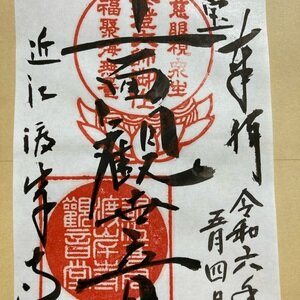 奉拝
令和六年
五月四日
慈眼視衆生
福聚海無量
十一面観世音
渡岸寺
觀音堂
近江渡岸寺